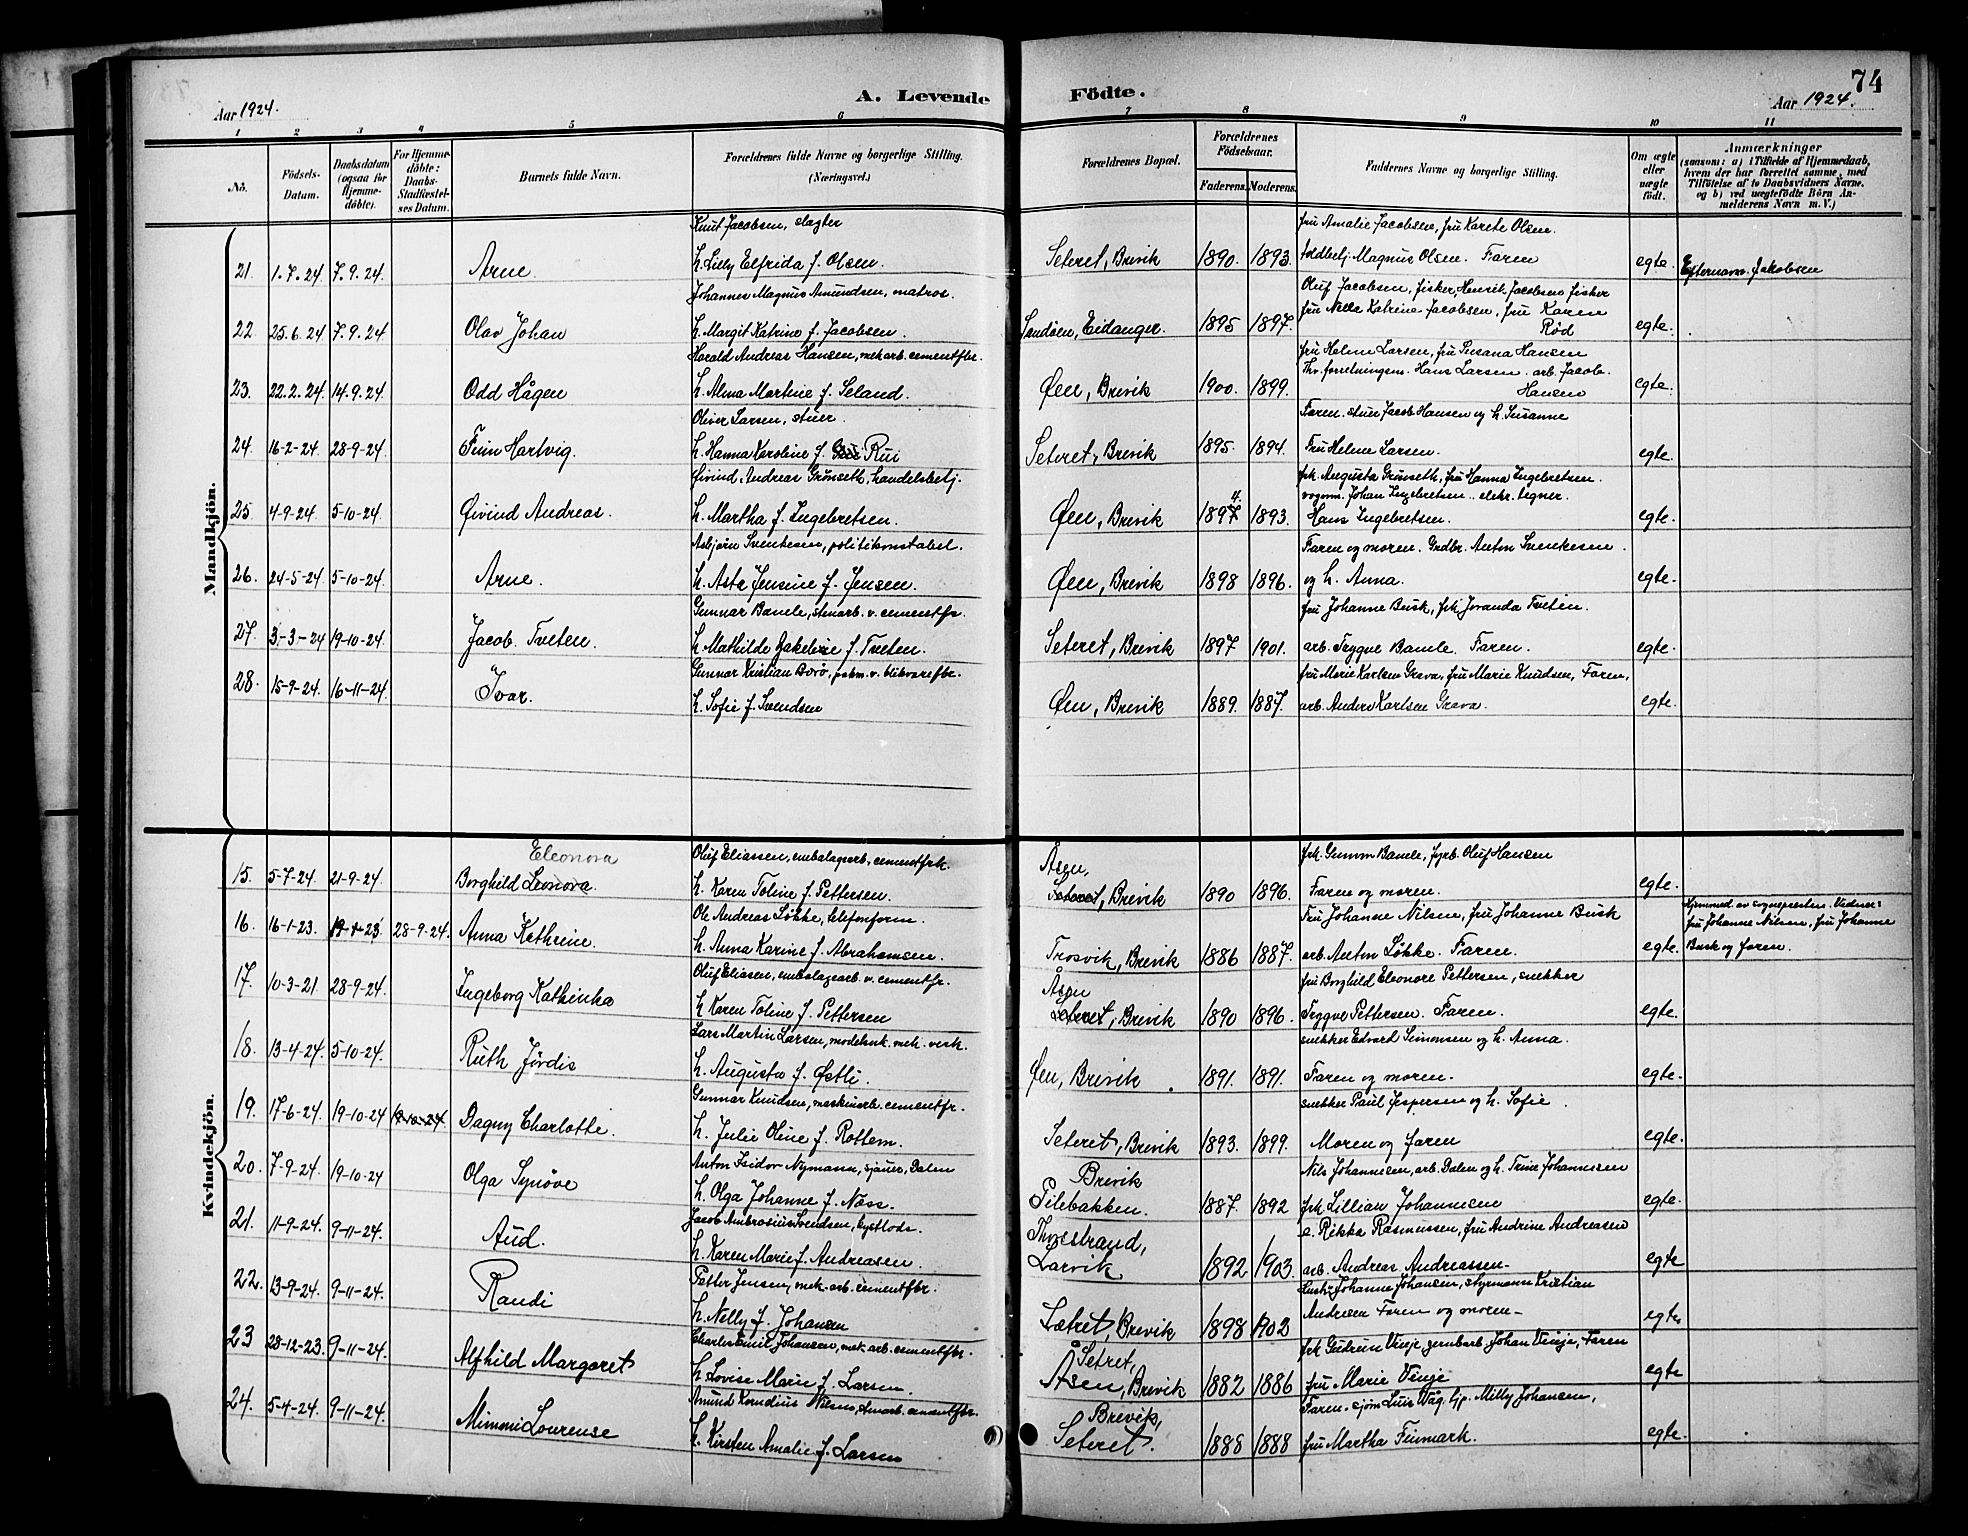 74
Aar 1924.
A. Levende Födte.
Aar 1924.
1 2 3 4 5 6 7 8 9 10 11
No.
Födsels-Datum.
Daabsdatum (ogsaa for Hjemmedöbte).
For Hjemmedöbte: Daabs-Stadfæstelses Datum.
Barnets fulde Navn.
Forældrenes fulde Navne og borgerlige Stilling. (Næringsvei.)
Forældrenes Bopæl.
Forældrenes Födselsaar.
Faderens. Moderens.
Faddernes Navne og borgerlige Stilling.
Om ægte eller uægte født.
Anmærkninger
(saasom: a) i Tilfælde af Hjemmedaab, hvem der har forrettet samme, med Tilföielse af to Daabsvidners Navne, og b) ved uægtefödte Börn Anmelderens Navn m. V.)
Mandkjön.
Knut Jacobsen, slagter fru Amalie Jacobsen, fru Karete Olsen.
21. 1.7.24 7.9.24. Arne. h. Lilly Elfrida f. Olsen. Seteret, Brevik 1890. 1893. toldbetj. Magnus Olsen. Faren egte. Efternavn Jakobsen
Johannes Magnus Amundsen, matros. Oluf Jacobsen, fisker, Henrik Jacobsen fisker
22. 25.6.24 7.9.24 Olav Johan h. Margit Katrine f. Jacobsen. Sandøen, Eidanger. 1895 1897. fru Nella Katrine Jacobsen, fru Karen Rød egte.
Harald Andreas Hansen, mek.arb. cementfbr. fru Helene Larsen, fru Susana Hansen
23. 22.2.24 14.9.24 Odd Hågen h. Alma Martine f. Seland. Øen, Brevik 1900. 1899. forretningsm. Hans Larsen. arb. Jacob Hansen egte.
Oliver Larsen, stuer. Faren. stuer Jacob Hansen og h. Susanne
24. 16-2-24 28-9-24 Finn Hartvig. h. Hanna Karoline f. Rui Seteret, Brevik 1895. 1894. Fru Helene Larsen. egte.
Øivind Andreas Grönseth, handelsbetj. frk. Augusta Grönseth, fru Hanna Ingebretsen.
25. 4-9-24. 5-10-24. Øivind Andreas. h. Martha f. Ingebretsen. Øen, Brevik 1897 4. 1893. vognm. Johan Ingebretsen. elektr. tegner. Hans Ingebretsen. egte.
Asbjørn Svenkesen, politikonstabel. Faren og moren. Grdbr. Anton Svenkesen.
26. 24-5-24 5-10-24. Arne. h. Asta Jensine f. Jensen. Øen, Brevik 1898 1896. og h. Anna. egte.
Gunnar Bamle, stenarb. v. cementfr. fru Johanne Busk, frk. Jovanda Tveten.
27. 3-3-24 19-10-24. Jacob Tveten. h. Mathilde Jakeline f. Tveten. Seteret, Brevik 1897 1901. arb. Trygve Bamle. Faren. egte.
Gunnar Kristian Borö, v. blikvarefbr. fru Marie Karlsen Grava, fru Marie Knudsen, Faren,
28. 15-9-24. 16-11-24. Ivar. h. Sofie f. Svendsen Øen, Brevik 1889. 1887. arb. Anders Karlsen Grava. egte.
Kvindekjön.
Eleonora Oluf Eliassen, embalagearb. cementfrk. Åsen, frk. Gunvor Bamle, fyrb. Oluf Hansen
15. 5-7-24. 21-9-24. Borghild Leonora. h. Karen Toline f. Pettersen. Seteret, Brevik 1890 1896. Faren og moren. egte.
Ole Andreas Løkke, telefonform. Fru Johanne Nilsen, fru Johanne Busk Hjemmed. av sognepresten. Vidner:
16. 16-1-23. 19-1-23 28-9-24. Anna Kathrine. h. Anna Karine f. Abrahamsen. Trosvik, Brevik 1886 1887. arb. Anton Løkke. Faren. egte. fru Johanne Nilsen, fru Johanne Busk og faren.
Oluf Eliasen, embalagearb. v. cementfr. Åsen fru Borghild Eleonore Pettersen, snekker
17. 10-3-21. 28-9-24. Ingeborg Kathinka h. Karen Toline f. Pettersen Seteret, Brevik 1890 1896. Trygve Pettersen. Faren. egte.
Lars Martin Larsen, modelsnk. mek. verk. snekker Edvard Simonsen og h. Anna.
18. 13-4-24. 5-10-24. Ruth Jørdis h. Augusta f. Østli. Øen, Brevik. 1891. 1891. Faren og moren. egte.
Gunnar Knudsen, maskinarb. cementfr. snekker Paul Jespersen og h. Sofie.
19. 17-6-24. 19-10-24 19-10-24 Dagny Charlotte. h. Julie Oline f. Rottem. Seteret, Brevik 1893. 1899. Moren og faren egte.
Anton Isidor Nymann, sjauer, Dalen Brevik Nils Johannesen, arb. Dalen og h. Trine Johannesen
20. 7-9-24. 19-10-24 Olga Synöve h. Olga Johanne f. Næss. Pilebakken. 1887. 1892 frk. Lillian Johannesen egte.
Jacob Ambrosius Svendsen, kystlods. e. Rikka Rasmussen, fru Andrine Andreasen
21. 11-9-24. 9-11-24. Aud. h. Karen Marie f. Andreasen. Larvik 1892 1903. arb. Andreas Andreassen. egte
Petter Jensen, mek. arb. cementfbr. Johanne Johansen, styrmann Kristian
22. 13-9-24. 9-11-24. Randi h. Nelly f. Johansen Sætret, Brevik 1898 1902 Andresen Faren og moren. egte
Charles Emil Johansen, mek. arb. cementfbr. Setret, frk. Gudrun Vinje, jernbarb. Johan Vinje, Faren
23 28-12-23. 9-11-24. Alfhild Margaret h. Lovise Marie f. Larsen. Åsen, Brevik 1882 1886 fru Marie Vinje egte
Amund Kornelius Nilsen, stenarb. cementfbr. Brevik, Faren. sjöm. Luis Wåg. Milly Johansen,
24. 5-4-24. 9-11-24. Mimmi Lovrense h. Kirsten Amalie f. Larsen Seteret. 1888 1888 fru Martha Finmark. egte.